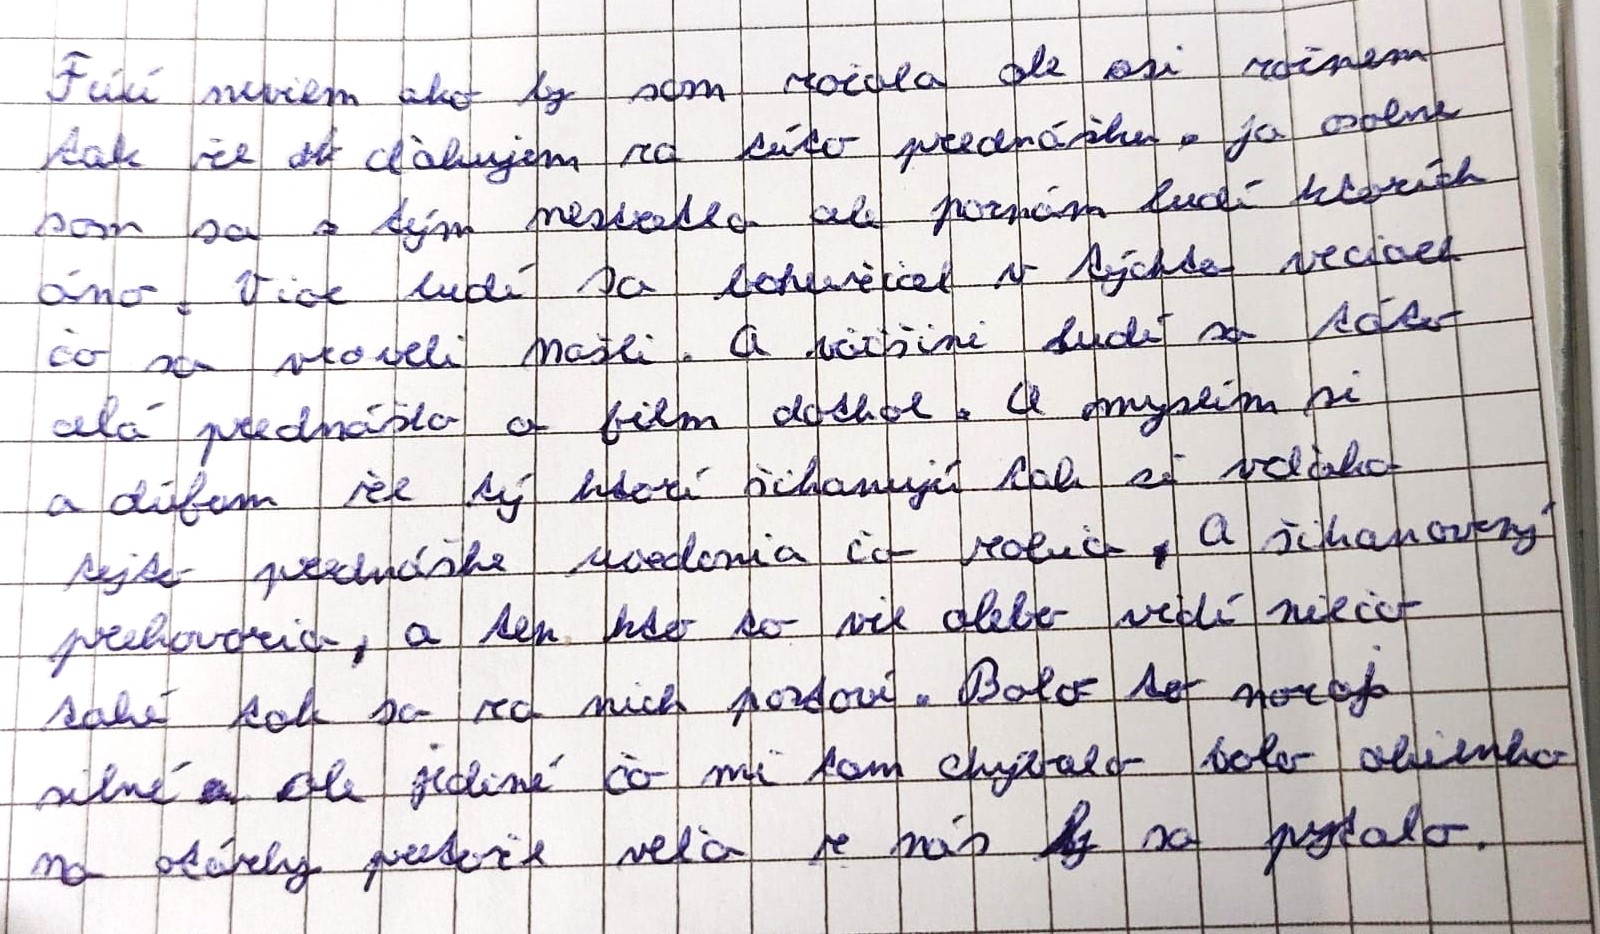 Fúúí neviem ako by som začala ale asi začnem
tak že ďakujem za túto prednášku. ja osobne
som sa s tým nestretla ale poznám ludí ktorích
áno. Viac ludí sa bohužial v týchto veciach
čo sa rozoveli našli. A väčšine ludí sa táto
celá prednáška a film dotkol. A myslím si
a dúfam že tý ktorí šikanujú tak si vďaka
tejto prednáške uvedomia čo robia, A šikanovaný
prehovoria, a ten kto to vie alebo vidí niečo
také tak sa za nich postaví. Bolo to naozaj
silné ale jediné čo mi tam chýbalo bolo okienko
na otázky pretože vela z nás by sa pýtalo.